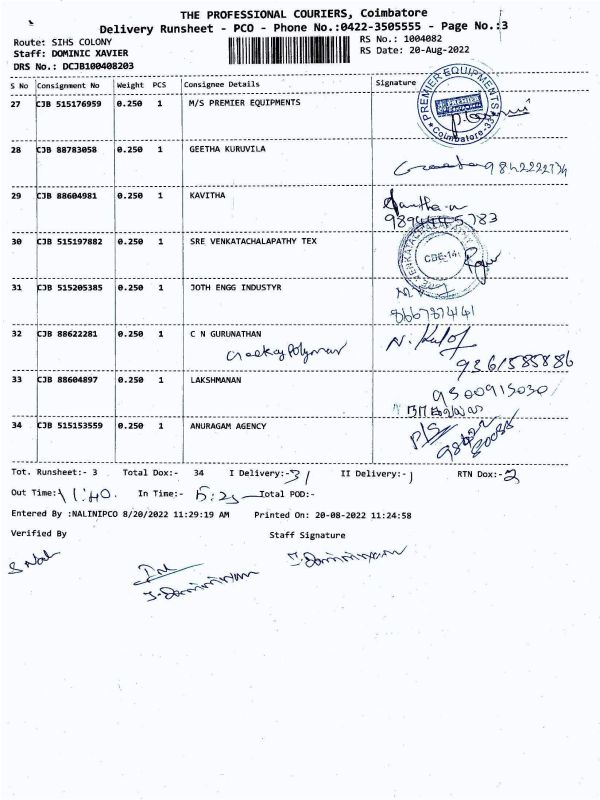 THE PROFESSIONAL COURIERS, Coimbatore
Delivery Runsheet - PCO - Phone No.:0422-3505555 - Page No.:3
Route: SIHS COLONY
RS No.: 1004082
Staff: DOMINIC XAVIER
RS Date: 20-Aug-2022
DRS No.: DCJB100408203
S No Consignment No Weight PCS Consignee Details Signature
27 CJB 515176959 0.250 1 M/S PREMIER EQUIPMENTS
PREMIER EQUIPMENTS
Coimbatore-33
28 CJB 88783058 0.250 1 GEETHA KURUVILA
29 CJB 88604981 0.250 1 KAVITHA
30 CJB 515197882 0.250 1 SRE VENKATACHALAPATHY TEX
CBE-14
31 CJB 515205385 0.250 1 JOTH ENGG INDUSTYR
8667374141
32 CJB 88622281 0.250 1 C N GURUNATHAN
9361585886
33 CJB 88604897 0.250 1 LAKSHMANAN
9500915030
34 CJB 515153559 0.250 1 ANURAGAM AGENCY
Tot. Runsheet:- 3 Total Dox:- 34 I Delivery:-31 II Delivery:-1 RTN Dox:-2
Out Time:11:40. In Time:- 5:25 Total POD:-
Entered By :NALINIPCO 8/20/2022 11:29:19 AM Printed On: 20-08-2022 11:24:58
Verified By Staff Signature